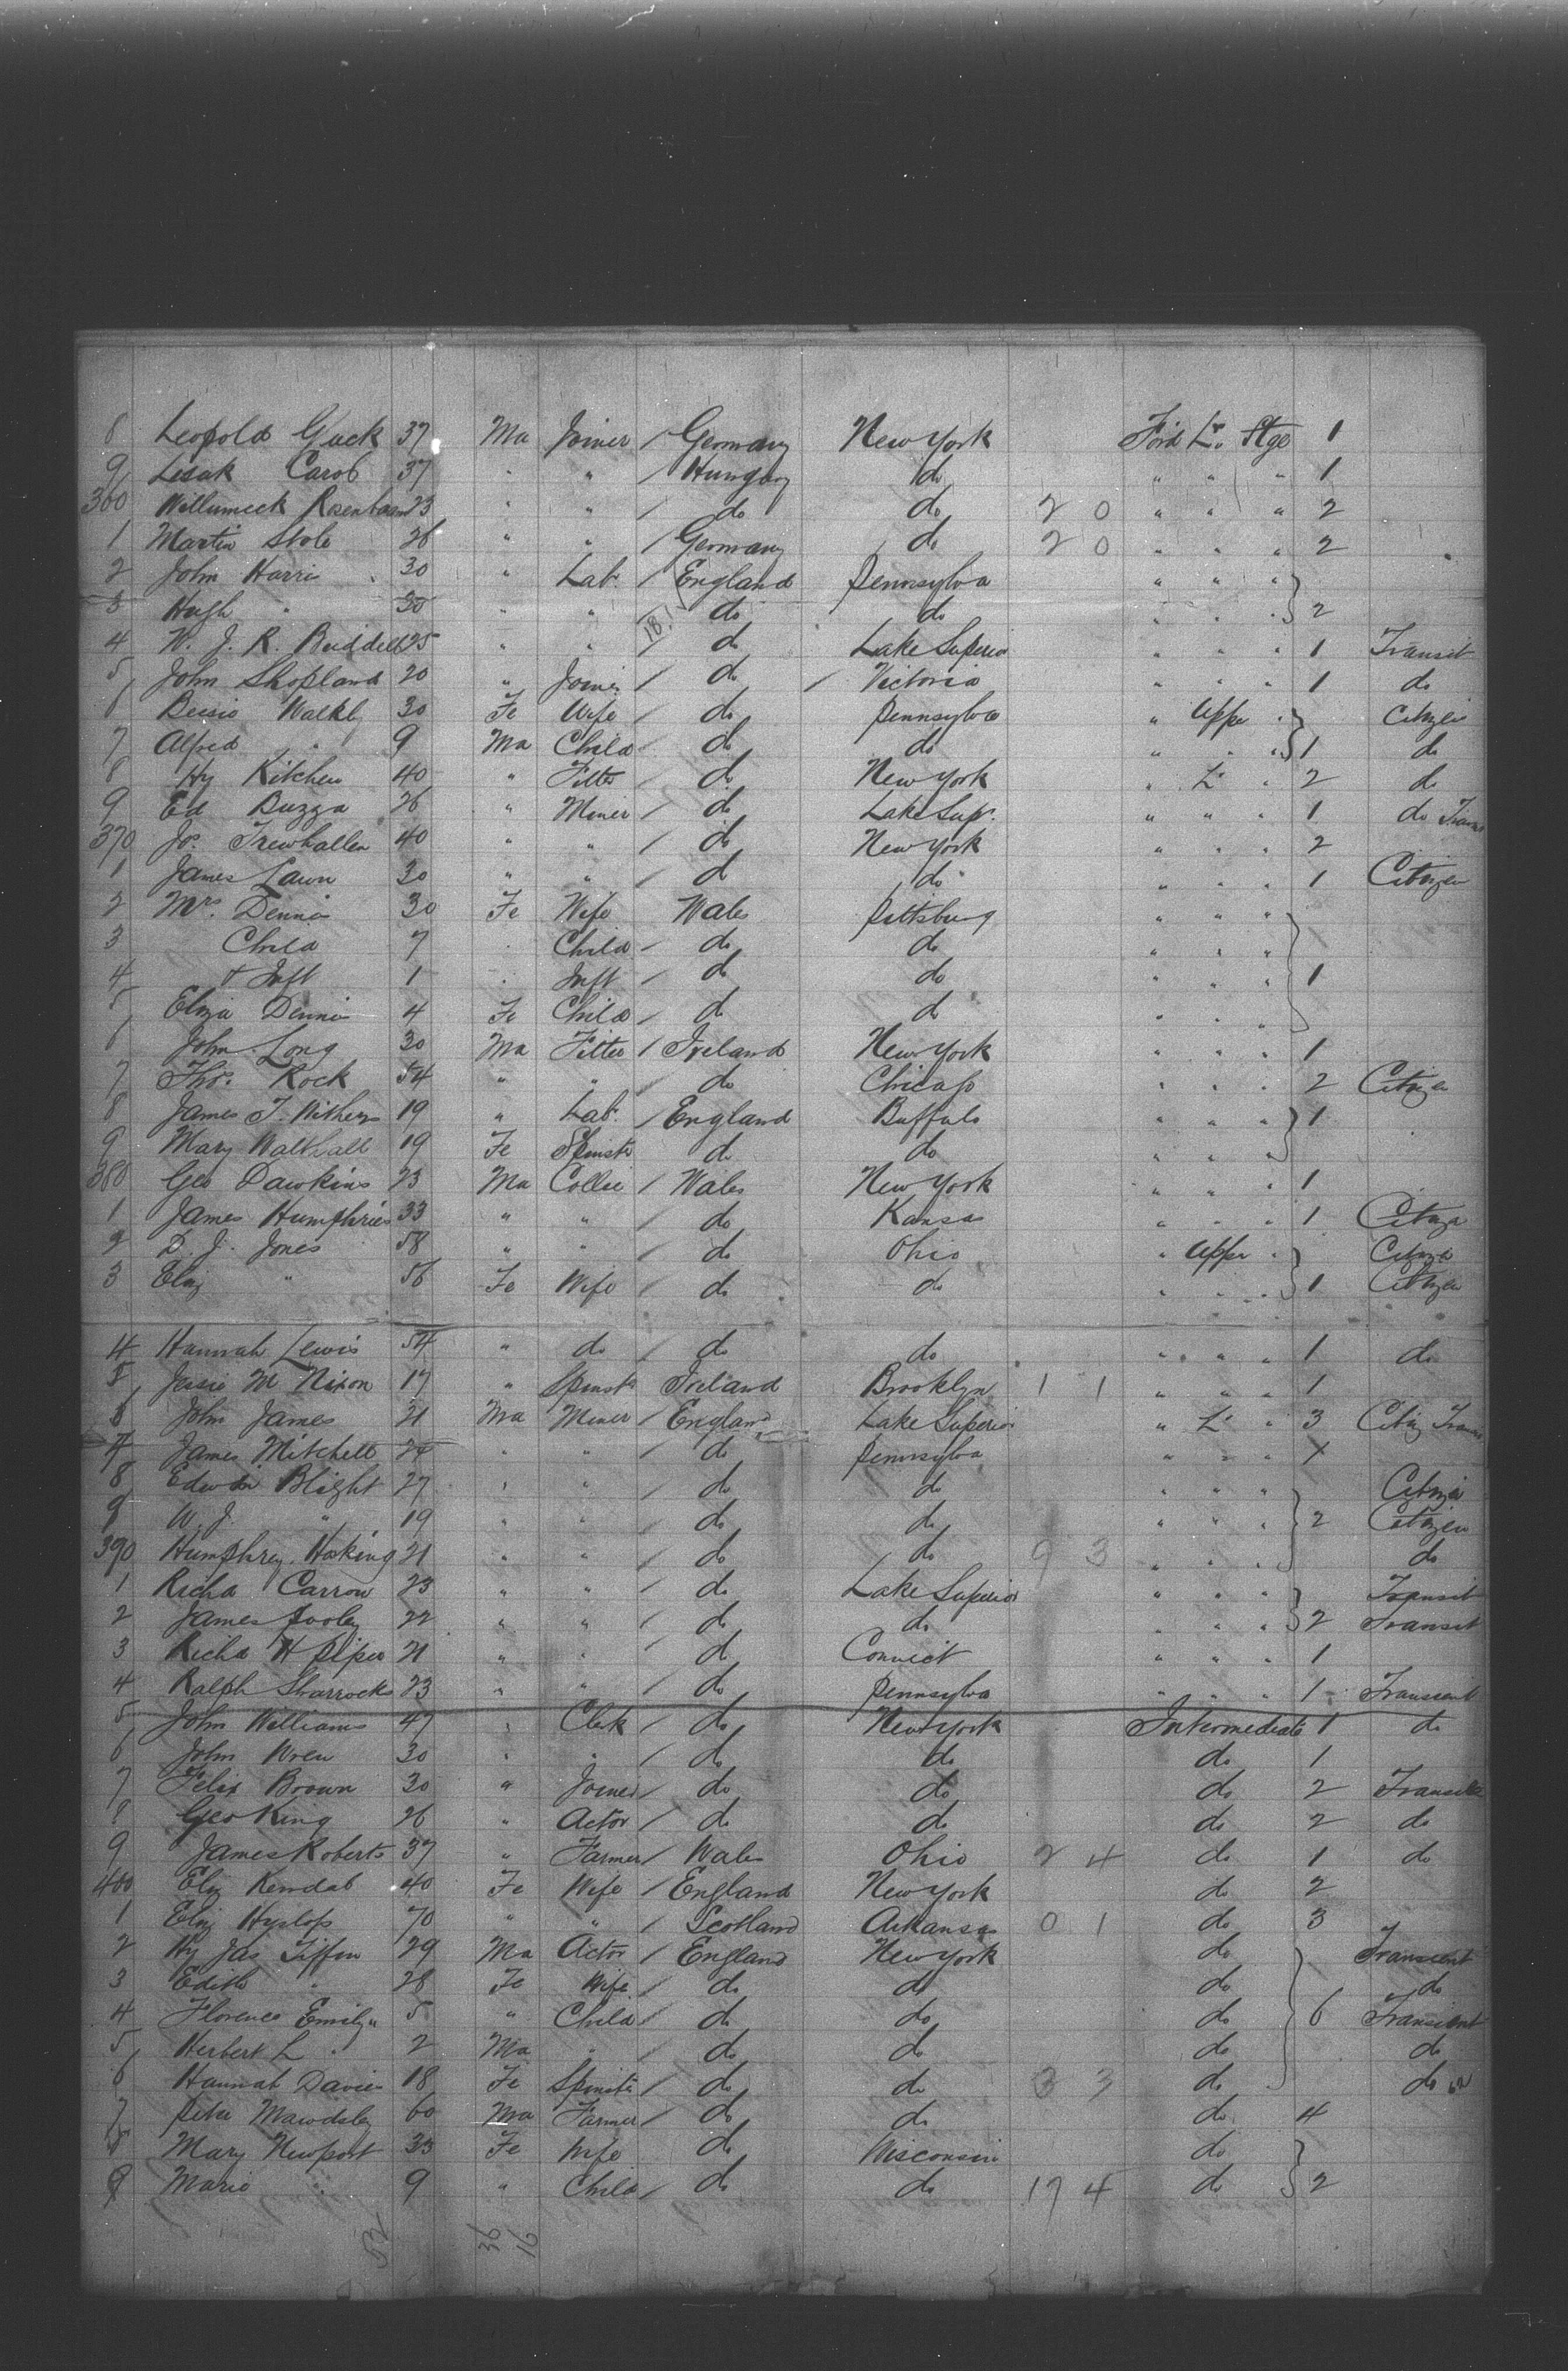 8 Leopold Guck 37 Ma Joiner / Germany New York Ford Lr. Stge 1
9 Lesak Carob 37 " " / Hungary do " " " 1
360 Willumeck Rosenbaum 23 " " / do do 2 0 " " " 2
1 Martin Stole 26 " " / Germany do 2 0 " " " 2
2 John Harris 30 " Lab. / England Pennsylva " " "
3 Hugh " 30 " " do do " " " 2
4 W. J. R. Ruddell 25 " " / do Lake Superior " " " 1 Transit
5 John Shopland 20 " Joiner / do / Victoria " " " 1 do
6 Bessie Walkly 30 Fe Wife / do Pennsylva " Upper " Citizen
7 Alfred " 9 Ma Child / do do " " " 1 do
8 Hy Kitchen 40 " Fitter / do New York " Lr " 2 do
9 Ed Buzza 26 " Miner / do Lake Supr. " " " 1 do Trans
370 Js. Trewhallen 40 " " / do New York " " " 2
1 James Lawn 30 " " / do do " " " 1 Citizen
2 Mrs. Dennis 30 Fe Wife Wales Pittsburg " " "
3 Child 7 " Child / do do " " "
4 & Inft 1 " Inft / do do " " " 1
5 Eliza Dennis 4 Fe Child / do do " " "
6 John Long 30 Ma Fitter / Ireland New York " " " 1
7 Thos. Rock 54 " " / do Chicago " " " 2 Citizen
8 James T. Withers 19 " Lab. / England Buffalo " " " 1
9 Mary Walthall 19 Fe Spinstr do do " " "
380 Geo Dawkins 23 Ma Collier / Wales New York " " " 1
1 James Humphries 33 " " / do Kansas " " " 1 Citizen
2 D. J. Jones 58 " " / do Ohio " Upper " Citizen
3 Eliz " 56 Fe Wife / do do " " " 1 Citizen
4 Hannah Lewis 54 " do / do do " " " 1 do
5 Jessie M Nixon 17 " Spinstr Ireland Brooklyn 1 1 " " " 1
6 John James 21 Ma Miner / England Lake Superior " Lr " 3 Citiz Trans
7 James Mitchell 24 " " / do Pennsylva " " " X
8 Edwdn Blight 27 " " / do do " " " Citizen
9 W. J. " 19 " " / do do " " " 2 Citizen
390 Humphrey Hosking 21 " " / do do 9 3 " " " do
1 Richd Carrow 23 " " / do Lake Superior " " " Transit
2 James Pooley 22 " " / do do " " " 2 Transit
3 Richd H Piper 21 " " / do Connict " " " 1
4 Ralph Sharrocks 23 " " / do Pennsylva " " " 1 Transient
5 John Williams 47 " Clerk / do New York Intermediate 1 do
6 John Wren 30 " " / do do do 1
7 Felix Brown 30 " Joiner / do do do 2 Transient
8 Geo King 26 " Actor / do do do 2 do
9 James Roberts 37 " Farmer / Wales Ohio 2 4 do 1 do
400 Eliz Kendal 40 Fe Wife / England New York do 2
1 Eliz Hyslop 70 " " / Scotland Arkansas 0 1 do 3
2 Hy Jas Tiffin 29 Ma Actor / England New York do Transient
3 Edith " 28 Fe Wife / do do do do
4 Florence Emily " 5 " Child / do do do 6 Transient
5 Herbert L " 2 Ma " / do do do do
6 Hannah Davies 18 Fe Spinstr / do do 3 3 do do
7 Peter Mawdsley 60 Ma Farmer / do do do 4
8 Mary Newport 33 Fe Wife do Wisconsin do
9 Marie " 9 " Child / do do 17 4 do 2
52 36 16